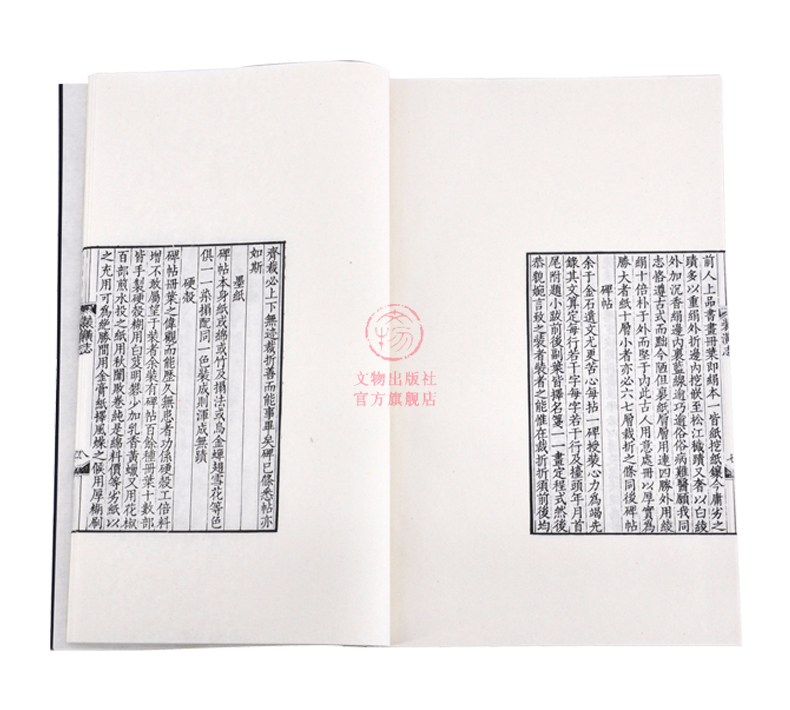 前人上品書畫冊葉即絹本一皆紙挖紙鑲今庸劣之
蹟多以重絹外折邊內挖嵌至松江穢蹟又奢以白綾
外加沉香絹邊內裏藍線逾巧逾俗俗病難醫願我同
志恪遵古式而黜今陋但裏紙層層用連四勝外用綾
絹十倍朴于外而堅于內此古人用意處冊以厚實為
勝大者紙十層小者亦必六七層裁折之條同後碑帖
碑帖
余于金石遺文尤更苦心每拈一碑授裝心力為竭先
錄其文算定每行若干字每字若干行及擡頭年月首
尾附題小跋前後副葉皆擇名箋一一畫定程式然後
恭貌婉言致之裝者裝者之能惟在裁折折須前後均
裝潢志
七
齊裁必上下無迹裁折善而能事畢矣碑已條悉帖亦
如斯
墨紙
碑帖本身紙或綿或竹及搨法或烏金蟬翅雪花等色
俱一一染搨配同一色裝成則渾成無蹟
硬殼
碑帖冊葉之偉觀而能歷久無患者功係硬殼工倍料
增不敢屬望于裝者余裝有碑帖百餘種冊葉十數部
皆手製硬殼糊用白芨明礬少加乳香黃蠟又用花椒
百部煎水投之紙用秋闈敗卷純是綿料價等劣紙以
之充用可為絕勝間用金膏紙擇風燥之候用厚糊刷
裝潢志
八
文物
文物出版社
官方旗艦店